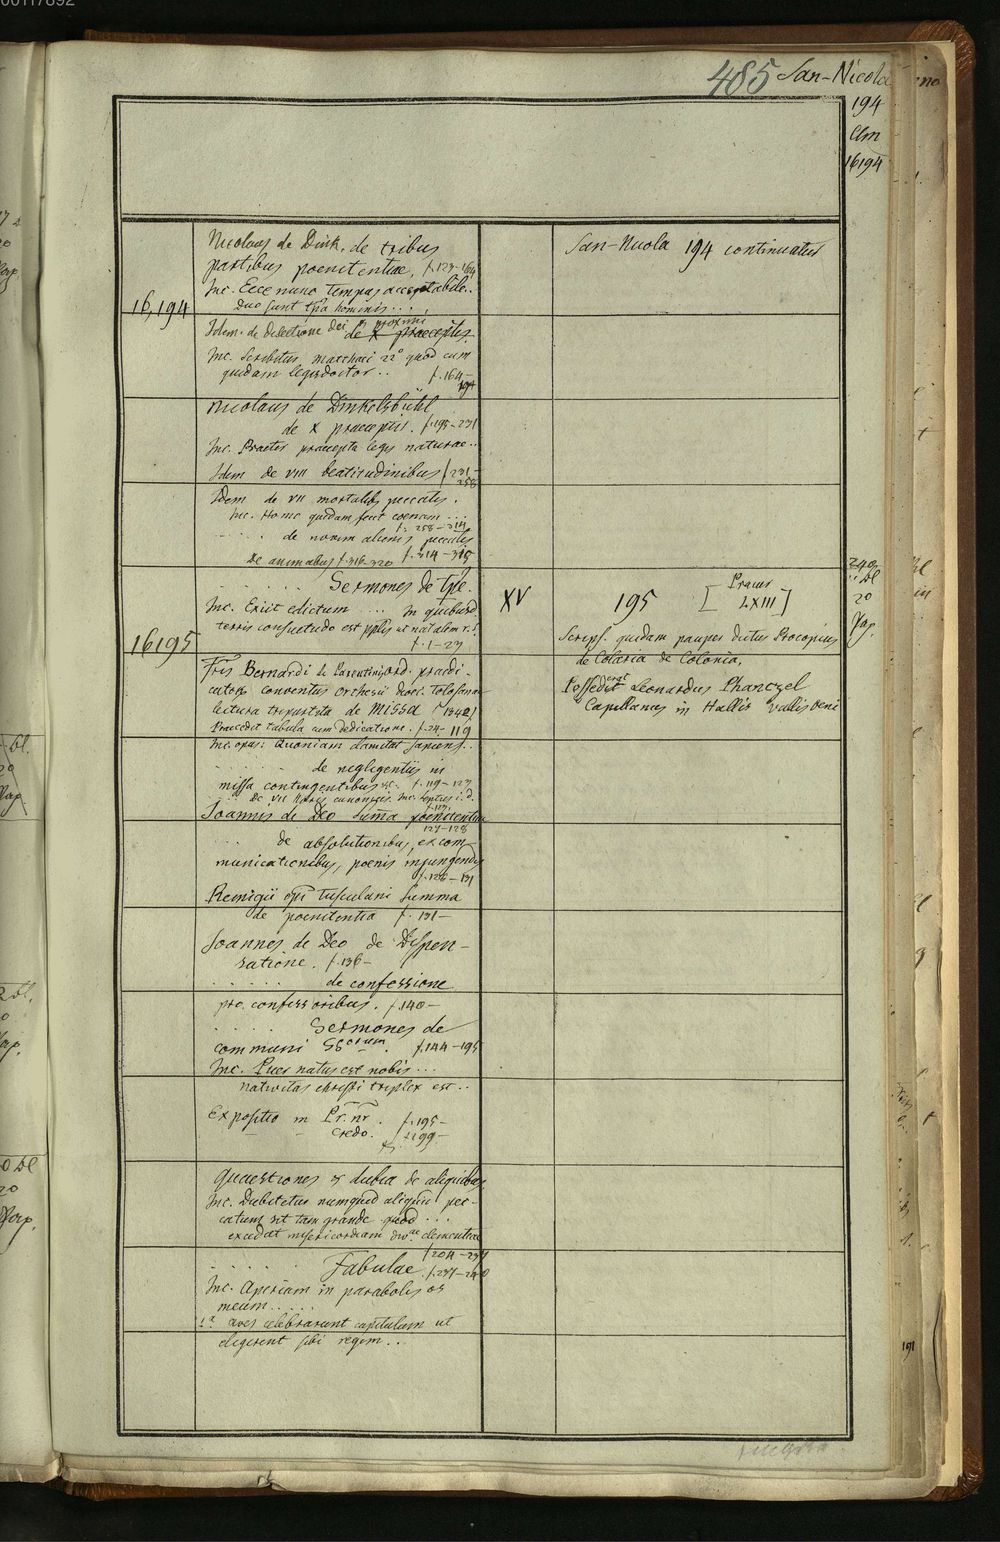 00117892
485 San-Nicola
194
Clm
16194
Nicolaus de Dink. de tribus
partibus poenitentiae. f. 123-164
Inc. Ecce nunc tempus acceptabile..
Duo sunt tpa hominis...
16,194
Idem. de dilectione dei et proximi
de X praeceptis.
Inc. Scribitur matthaei 22° quod cum
quidam legisdoctor.. f. 164-
194
Nicolaus de Dinkelsbühl
de X praeceptis. f. 195-231
Inc. Praeter praecepta legis naturae..
Idem de VIII beatitudinibus f. 231-
258
Idem de VII mortalibus peccatis.
Inc. Homo quidam fecit coenam...
f. 258-314
de novem alienis peccatis
de animabus f. 316-320 f. 314-315
San-Nicola 194 continuatur
Sermones de tpe.
Inc. Exiit edictum .... In quibusd
terris consuetudo est pplis ut natalem r. f.
f. 1-23
16195
XV
195 [Pracus
LXIII]
Scrips. quidam pauper dictus Procopius
de Colaria de Colonia.
Possedit erat Leonardus Phanczel
Capellanus in Hallis Vallis Oeni
240
Bl
2o
Pap.
Fris Bernardi de Parentinis ord. praedi-
catorum conventus Orthesii dioec. Tolosinae
lectura tripartita de Missa (1342)
Praecedit tabula cum dedicatione. f. 24-119
Inc. opus: Quoniam clamitat sapiens..
de negligentiis in
missa contingentibus etc. f. 119-123
De VII horis canonicis. Inc.
Joannis de Deo Suma poenitentiae
127-128
de absolutionibus, excom-
municationibus, poenis injungendis
f. 128-131
Remigii epi tusculani Summa
de poenitentia f. 131-
Joannes de Deo de Dispen-
satione. f. 136-
de confessione
pro confessoribus. f. 140-
Sermones de
communi SSorum. f. 144-195
Inc. Puer natus est nobis...
nativitas christi triplex est..
Expositio in Pr. nr. f. 195-
Credo. f. 199-
Quaestiones et dubia de aliquibus
Inc. Dubitetur numquid aliquod pec-
catum sit tam grande quod...
excedat misericordiam divae clementiae
f. 204-237
Fabulae. f. 237-240
Inc. Aperiam in parabolis os
meum.....
1a aves celebrarunt capitulum ut
eligerent sibi regem...
191